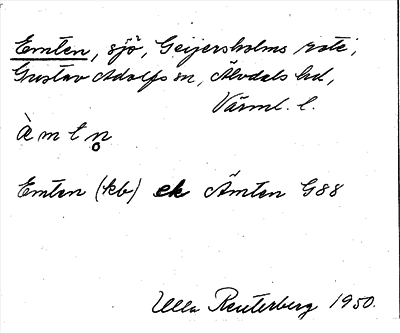 Emten, sjö, Geijersholms rote,
Gustav Adolfs sn, Älvdals hd,
Värml. l.
àmtn̥
Emten (kb) ek Ämten G88
Ulla Reuterberg 1950.